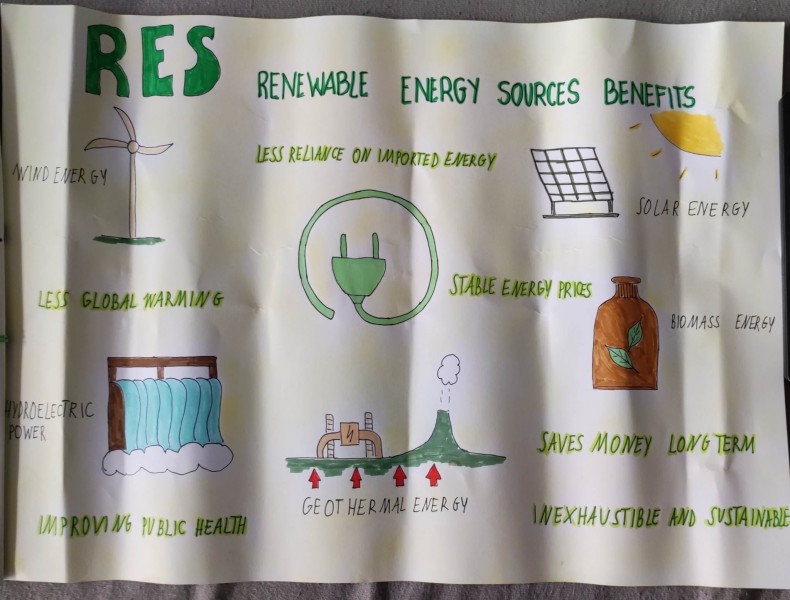 RES
RENEWABLE ENERGY SOURCES BENEFITS
WIND ENERGY
LESS RELIANCE ON IMPORTED ENERGY
SOLAR ENERGY
LESS GLOBAL WARMING
STABLE ENERGY PRICES
BIOMASS ENERGY
HYDROELECTRIC
POWER
SAVES MONEY LONG TERM
GEOTHERMAL ENERGY
IMPROVING PUBLIC HEALTH
INEXHAUSTIBLE AND SUSTAINABLE